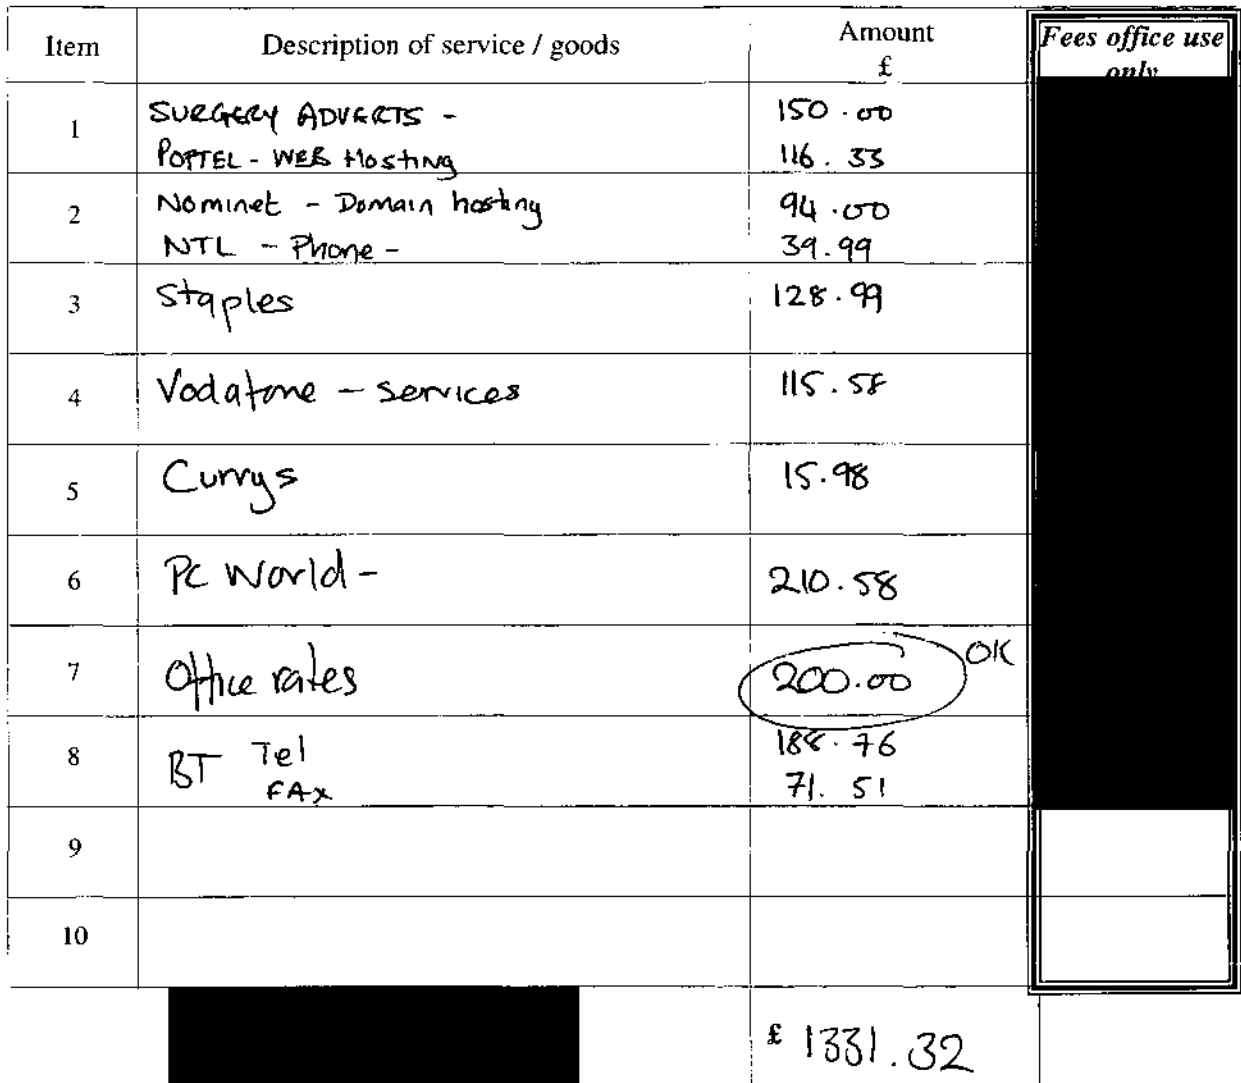 Item Description of service / goods Amount £ Fees office use only
1 SURGERY ADVERTS - 150.00
POPTEL - WEB Hosting 116.33
2 Nominet - Domain hosting 94.00
NTL - Phone - 39.99
3 Staples 128.99
4 Vodafone - services 115.58
5 Currys 15.98
6 PC World - 210.58
7 Office rates 200.00 OK
8 BT Tel 188.76
FAx 71.51
9
10
£ 1331.32